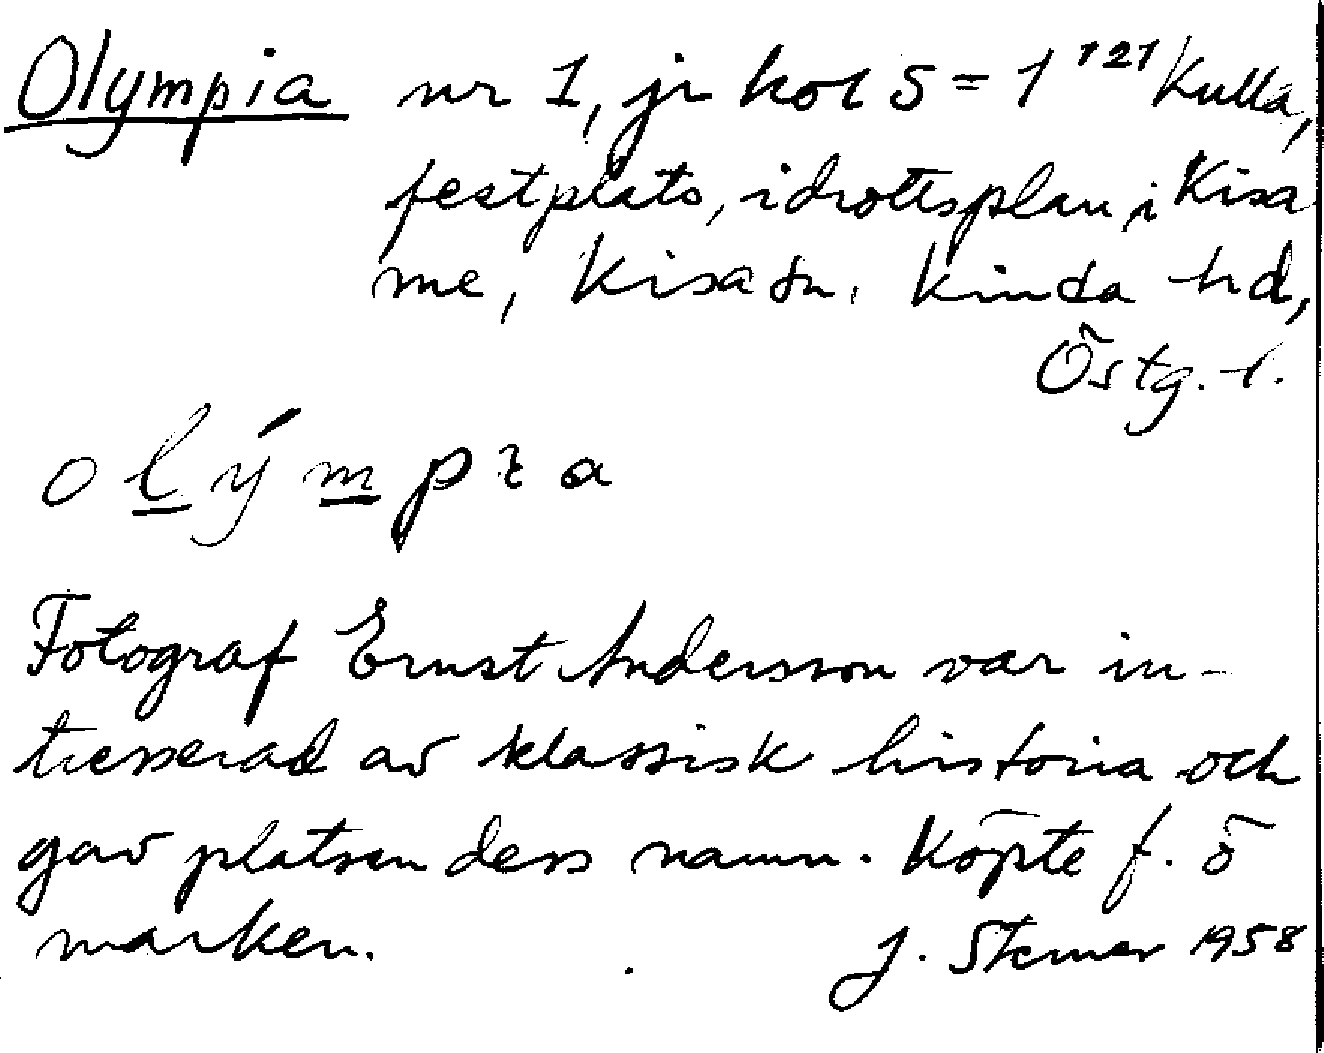 Olympia nr 1, jr kol 5 = 1 121 Kulla,
festplats, idrottsplan, i Kisa
me, Kisa sn. Kinda hd,
Östg. l.
olýmpıa
Fotograf Ernst Andersson var in-
tresserad av klassisk historia och
gav platsen dess namn. Köpte f. ö
marken.
J. Stemar 1958